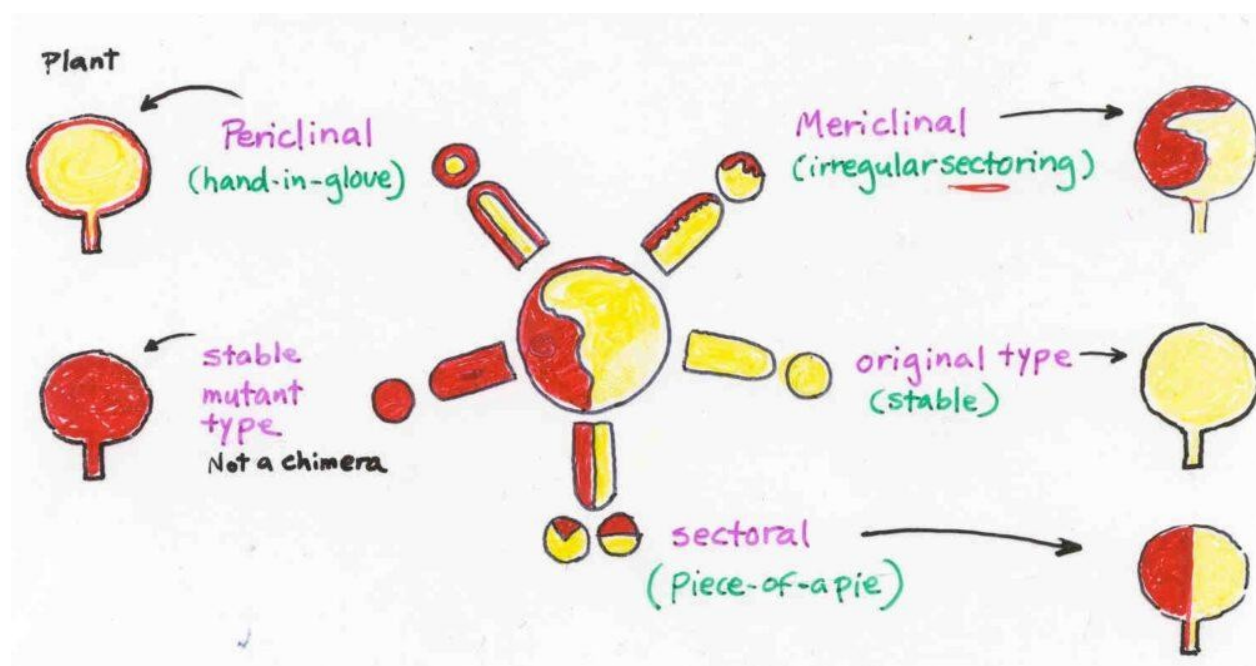 Plant
Periclinal
(hand-in-glove)
Mericlinal
(irregular sectoring)
stable
mutant
type
Not a chimera
original type
(stable)
sectoral
(Piece-of-a pie)